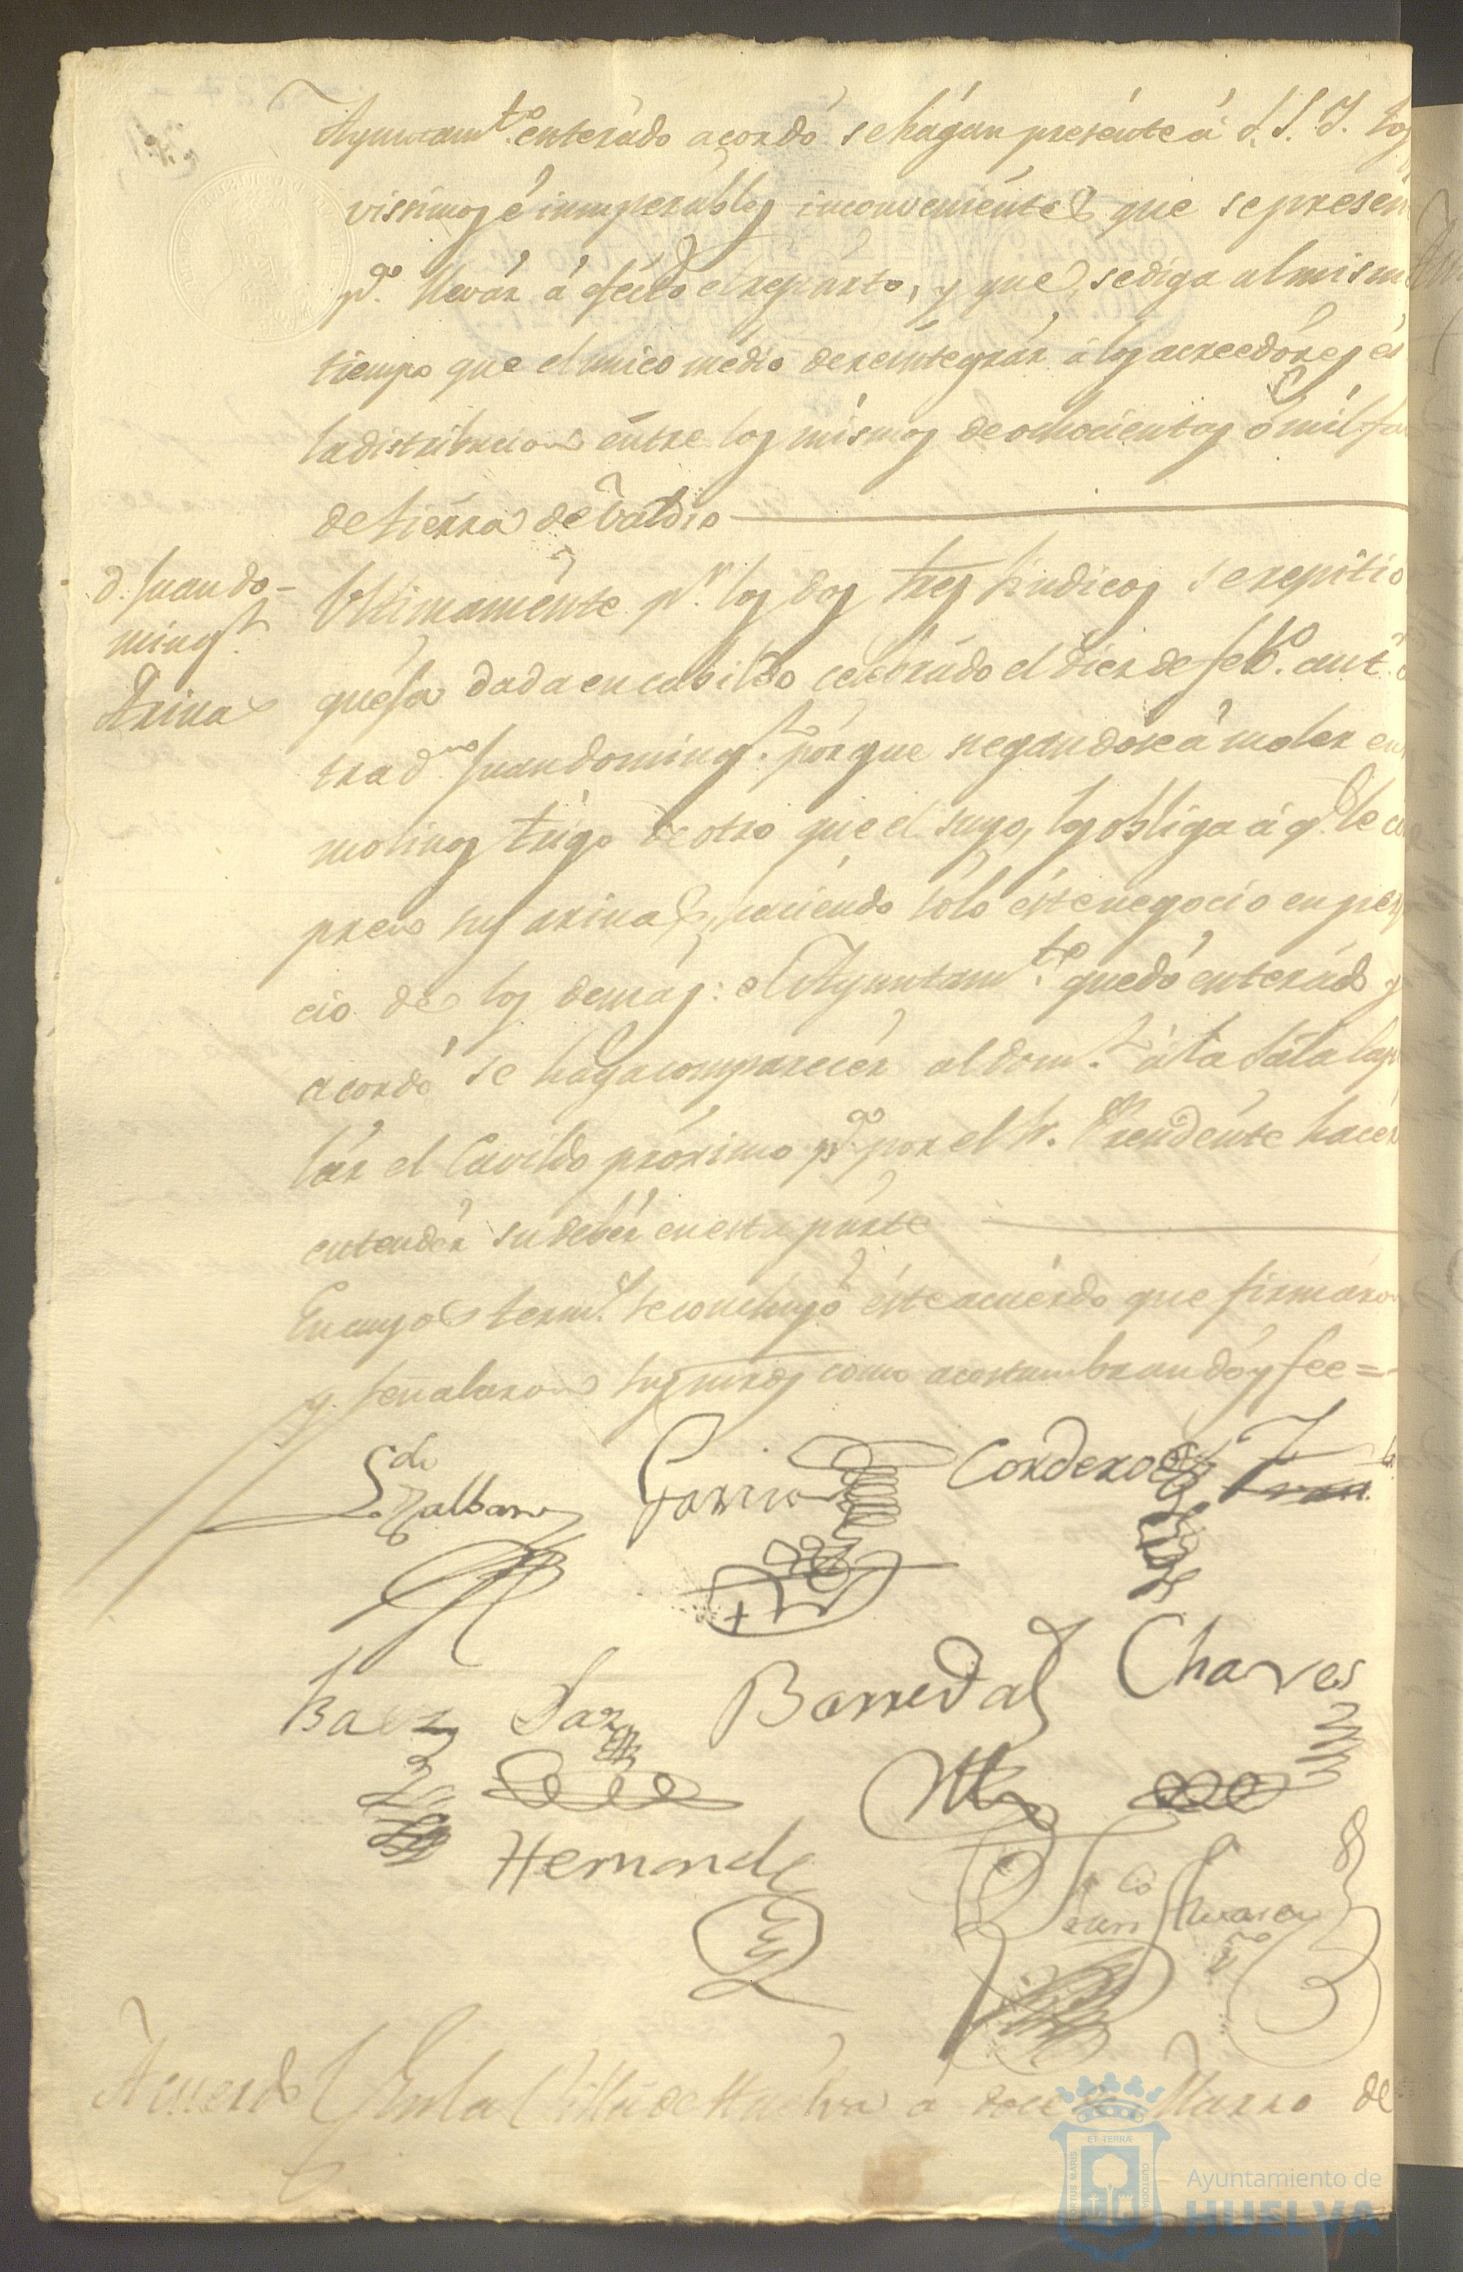 Ayuntam.to enterado acordó se hagan presente á S. S. Y. los
visimos é insuperables inconvenientes que se presen
p.a llevár á efécto el repárto, y que se diga al mism
tiempo que el unico médio de reintegrár á los acreedóres és
la distribucion entre los mismos de ochocientas ó mil fa
de tierra de Valdio
D. Juan do-
ming.z
Arina
Ultimamente p.r los dos Sres Sindicos se repitio
quesa dada en cabildo celebrado el dies de feb.o ant.r
tra d.n Juan doming.z pórque negandose á moler en
molinos trigo de otro que el suyo, los obliga á q.e le com
pren sus arinas, haciendo sólo éste negocio en perj
cio de los demás: el Ayuntam.to quedó enterádo y
acordó se haga comparecér al dom.z á la Sála
lár el Cavildo próximo p.a por el Sr. Presidente hacér
entendér su debér en esta párte
En cuyos term.s se concluyó éste acuérdo que firmáron
y señalaron sus mrds como acostumbran doy fee =
L.do Zalbano
Garrido
Cordero
Baez
Saz
Barreda
Chaves
Hernand
Acuerdo
En la Villa de Huelva á doce de Marzo de
ET TERRÆ
PORTUS MARIS
CUSTODIA
Ayuntamiento de
HUELVA